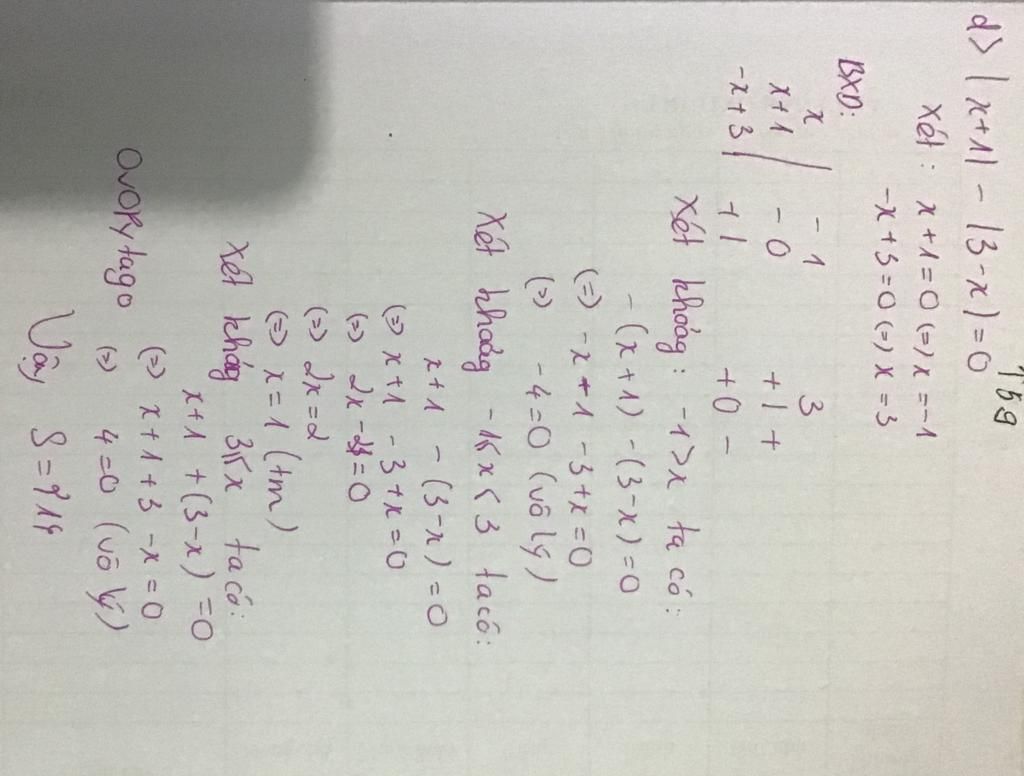 d) |x+1| - |3-x| = 0
Xét: x+1=0 (=) x = -1
-x+3=0 (=) x = 3
BXD:
x | -1 3
x+1 | - 0 + | +
-x+3 | + | + 0 -
Xét khoảng: -1>x ta có:
-(x+1) - (3-x) = 0
(=) -x-1 - 3+x = 0
(=) -4=0 (vô lý)
Xét khoảng -1≤x<3 ta có:
x+1 - (3-x) = 0
(=) x+1 - 3+x = 0
(=) 2x-2=0
(=) 2x=2
(=) x=1 (tm)
Xét khoảng 3≤x ta có:
x+1 +(3-x) = 0
(=) x+1+3-x = 0
(=) 4=0 (vô lý)
Vậy S={1}
OvORytago